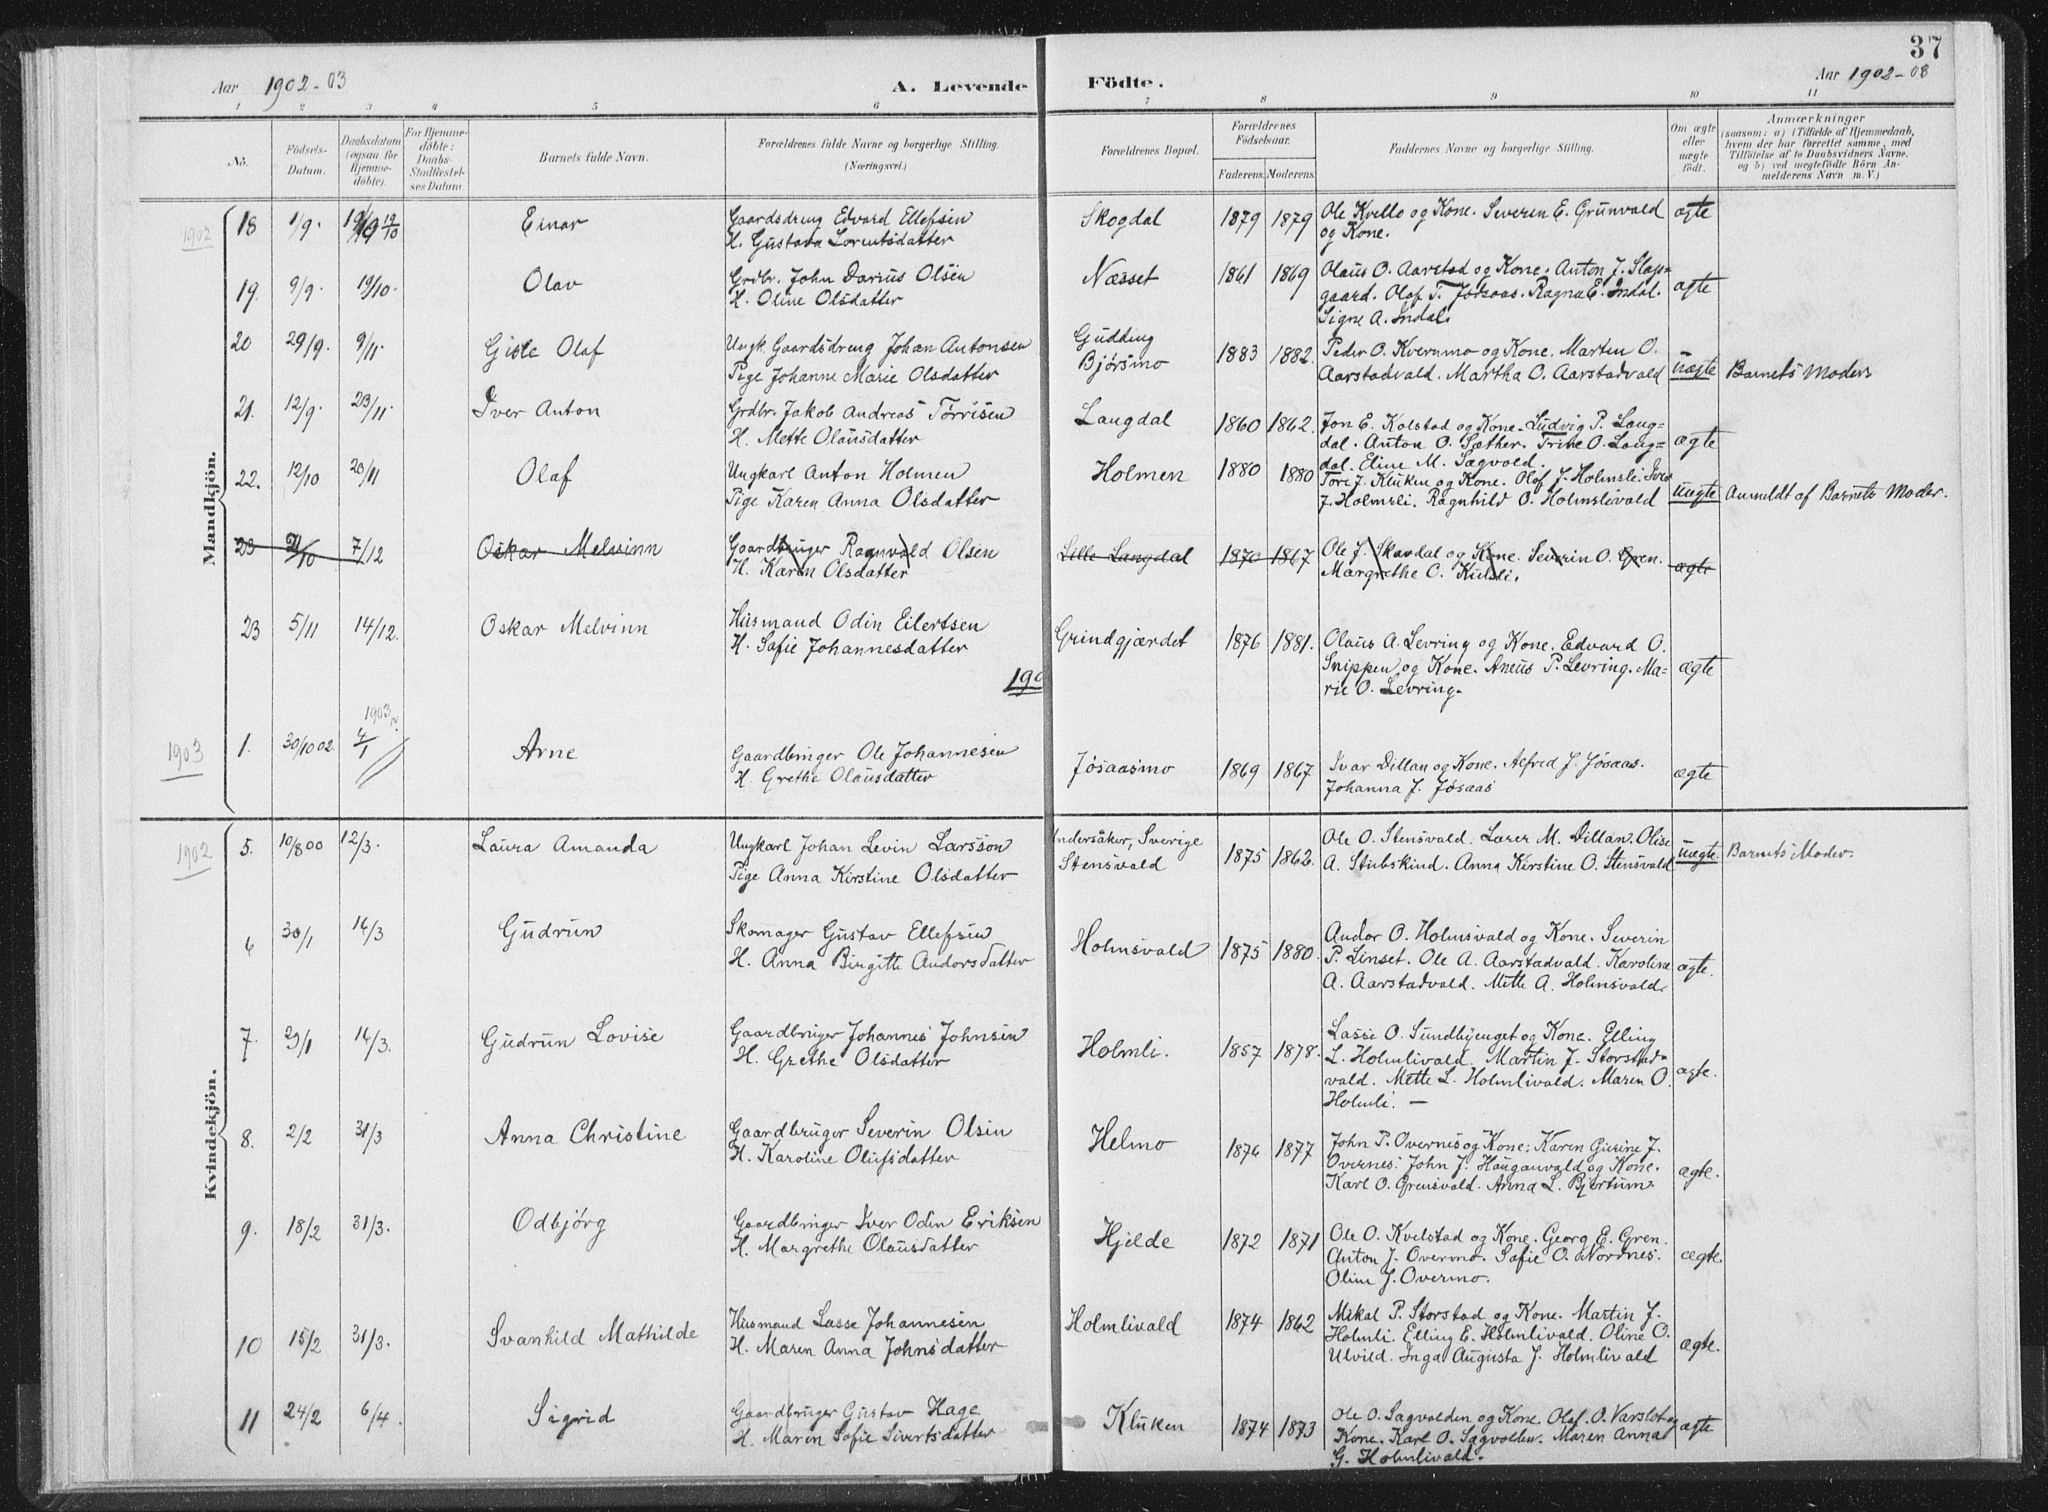 37
Aar 1902-03 A. Levende Födte. Aar 1902-03
1 2 3 4 5 6 7 8 9 10 11
No. Födsels-Datum. Daabsdatum (ogsaa for Hjemme-döbte). For Hjemme-döbte: Daabs-Stadfæstel-ses Datum Barnets fulde Navn. Forældrenes fulde Navne og borgerlige Stilling. (Næringsvei.) Forældrenes Bopæl. Forældrenes Födselsaar. Faderens. Moderens. Faddernes Navne og borgerlige Stilling. Om ægte eller uægte födt. Anmærkninger (saasom: a) i Tilfælde af Hjemmedaab, hvem der har forrettet samme, med Tilföielse af to Daabsvidners Navne. og b) ved uægtefödte Börn An-melderens Navn m. V.)
Mandkjön.
1902
18 1/9. 19/10 Einar Gaardsdreng Edvard Ellefsen Skogdal 1879 1879 Ole Kvello og Kone. Severin E. Grunvald ægte
H. Gustava Lorentsdatter og Kone.
19. 9/9. 19/10. Olav Grdbr. John Darius Olsen Næsset 1861 1869 Olaus O. Aarstad og Kone. Anton J. Slap= ægte
H. Oline Olsdatter gaard. Olaf T. Jøsaas. Ragna E. Indal.
Signe A. Indal.
20 29/9. 9/11. Gisle Olaf Ungk. Gaardsdreng Johan Antonsen Gudding 1883 1882. Peder O. Kvernmo og Kone. Martin O. uægte
Pige Johanne Marie Olsdatter Bjørsmo Aarstadvald. Martha O. Aarstadvald Barnets Moder
21. 12/9. 23/11. Iver Anton Grdbr. Jakob Andreas Torrisen Langdal 1860 1862. Jon E. Kolstad og Kone. Ludvig P. Lang=
H. Mette Olausdatter dal. Anton O. Sæther. Trine O. Lang= ægte
dal. Eline M. Sagvold.
22. 12/10 20/11 Olaf Ungkarl Anton Holmen Holmen 1880 1880 Tore J. Kluken og Kone. Olof J. Holmsli. Iver
Pige Karen Anna Olsdatter J. Holmsli. Ragnhild O. Holmslivald uægte Anmeldt af Barnets Moder.
23 21/10 7/12 Oskar Melvinn Gaardbruger Ragnvald Olsen Lille Langdal 1870 1867 Ole J. Skavdal og Kone. Severin O. Gren. ægte
H. Karen Olsdatter Margrethe O. Kulsli.
23 5/11 14/12. Oskar Melvinn Husmand Odin Eilertsen Grindgjærdet 1876 1881. Olaus A. Levring og Kone. Edvard O.
H. Safie Johannesdatter Snippen og Kone. Aneus P. Levring. Ma= ægte
190 rie O. Levring.
1903
1903
1. 30/10 02. 4/1 Arne Gaardbruger Ole Johannesen Jøsaasmo 1869 1867 Ivar Dillan og Kone. Alfred J. Jøsaas. ægte
H. Grethe Olausdatter Johanna J. Jøsaas
Kvindekjön.
1902
5. 10/8 00 12/3. Laura Amanda Ungkarl Johan Levin Larsson Undersåker, Sverige 1875 1862. Ole O. Stensvald. Laver M. Dillan. Olise uægte. Barnets Moder.
Pige Anna Kirstine Olsdatter Stensvald A. Stubskind. Anna Kirstine O. Stensvald
6 30/1 16/3 Gudrun Skomager Gustav Ellefsen Holmsvald 1875 1880. Andor O. Holmsvald og Kone. Severin
H. Anna Birgitte Andorsdatter P. Linset. Ole A. Aarstadvald. Karoline ægte.
A. Aarstadvald. Mette A. Holmsvald.
7. 29/1 16/3. Gudrun Lovise Gaardbruger Johannes Johnsen Holmli. 1857 1878. Lasse O. Sundbyenget og Kone. Elling
H. Grethe Olsdatter L. Holmlivald. Martin J. Storstad= ægte.
vald. Mette L. Holmlivald. Maren O.
Holmli. —
8. 2/2 31/3 Anna Christine Gaardbruger Severin Olsen Helmo 1876 1877 John P. Overnes og Kone. Karen Gurine J.
H. Karoline Olufsdatter Overnes. John J. Hauganvald og Kone. ægte.
Karl O. Grensvald. Anna L. Bjertum.
9. 18/2 31/3. Odbjørg Gaardbruger Iver Odin Eriksen Hjelde 1872 1871 Ole O. Kvelstad og Kone. Georg E. Gren.
H. Margrethe Olausdatter Anton J. Overmo. Safie O. Nordnes. ægte.
Oline J. Overmo.
10 15/2 31/3. Svanhild Mathilde Husmand Lasse Johannesen Holmlivald 1874 1862 Mikal P. Storstad og Kone. Martin J.
H. Maren Anna Johnsdatter Holmli. Elling E. Holmlivald. Oline O. ægte.
Ulvild. Inga Augusta J. Holmlivald
11 24/2 6/4. Sigrid Gaardbruger Gustav Hage Kluken 1874 1873 Ole O. Sagvolden og Kone. Olaf O. Varslot og ægte
H. Maren Safie Sivertsdatter Kone. Karl O. Sagvolden. Maren Anna
G. Holmlivald.